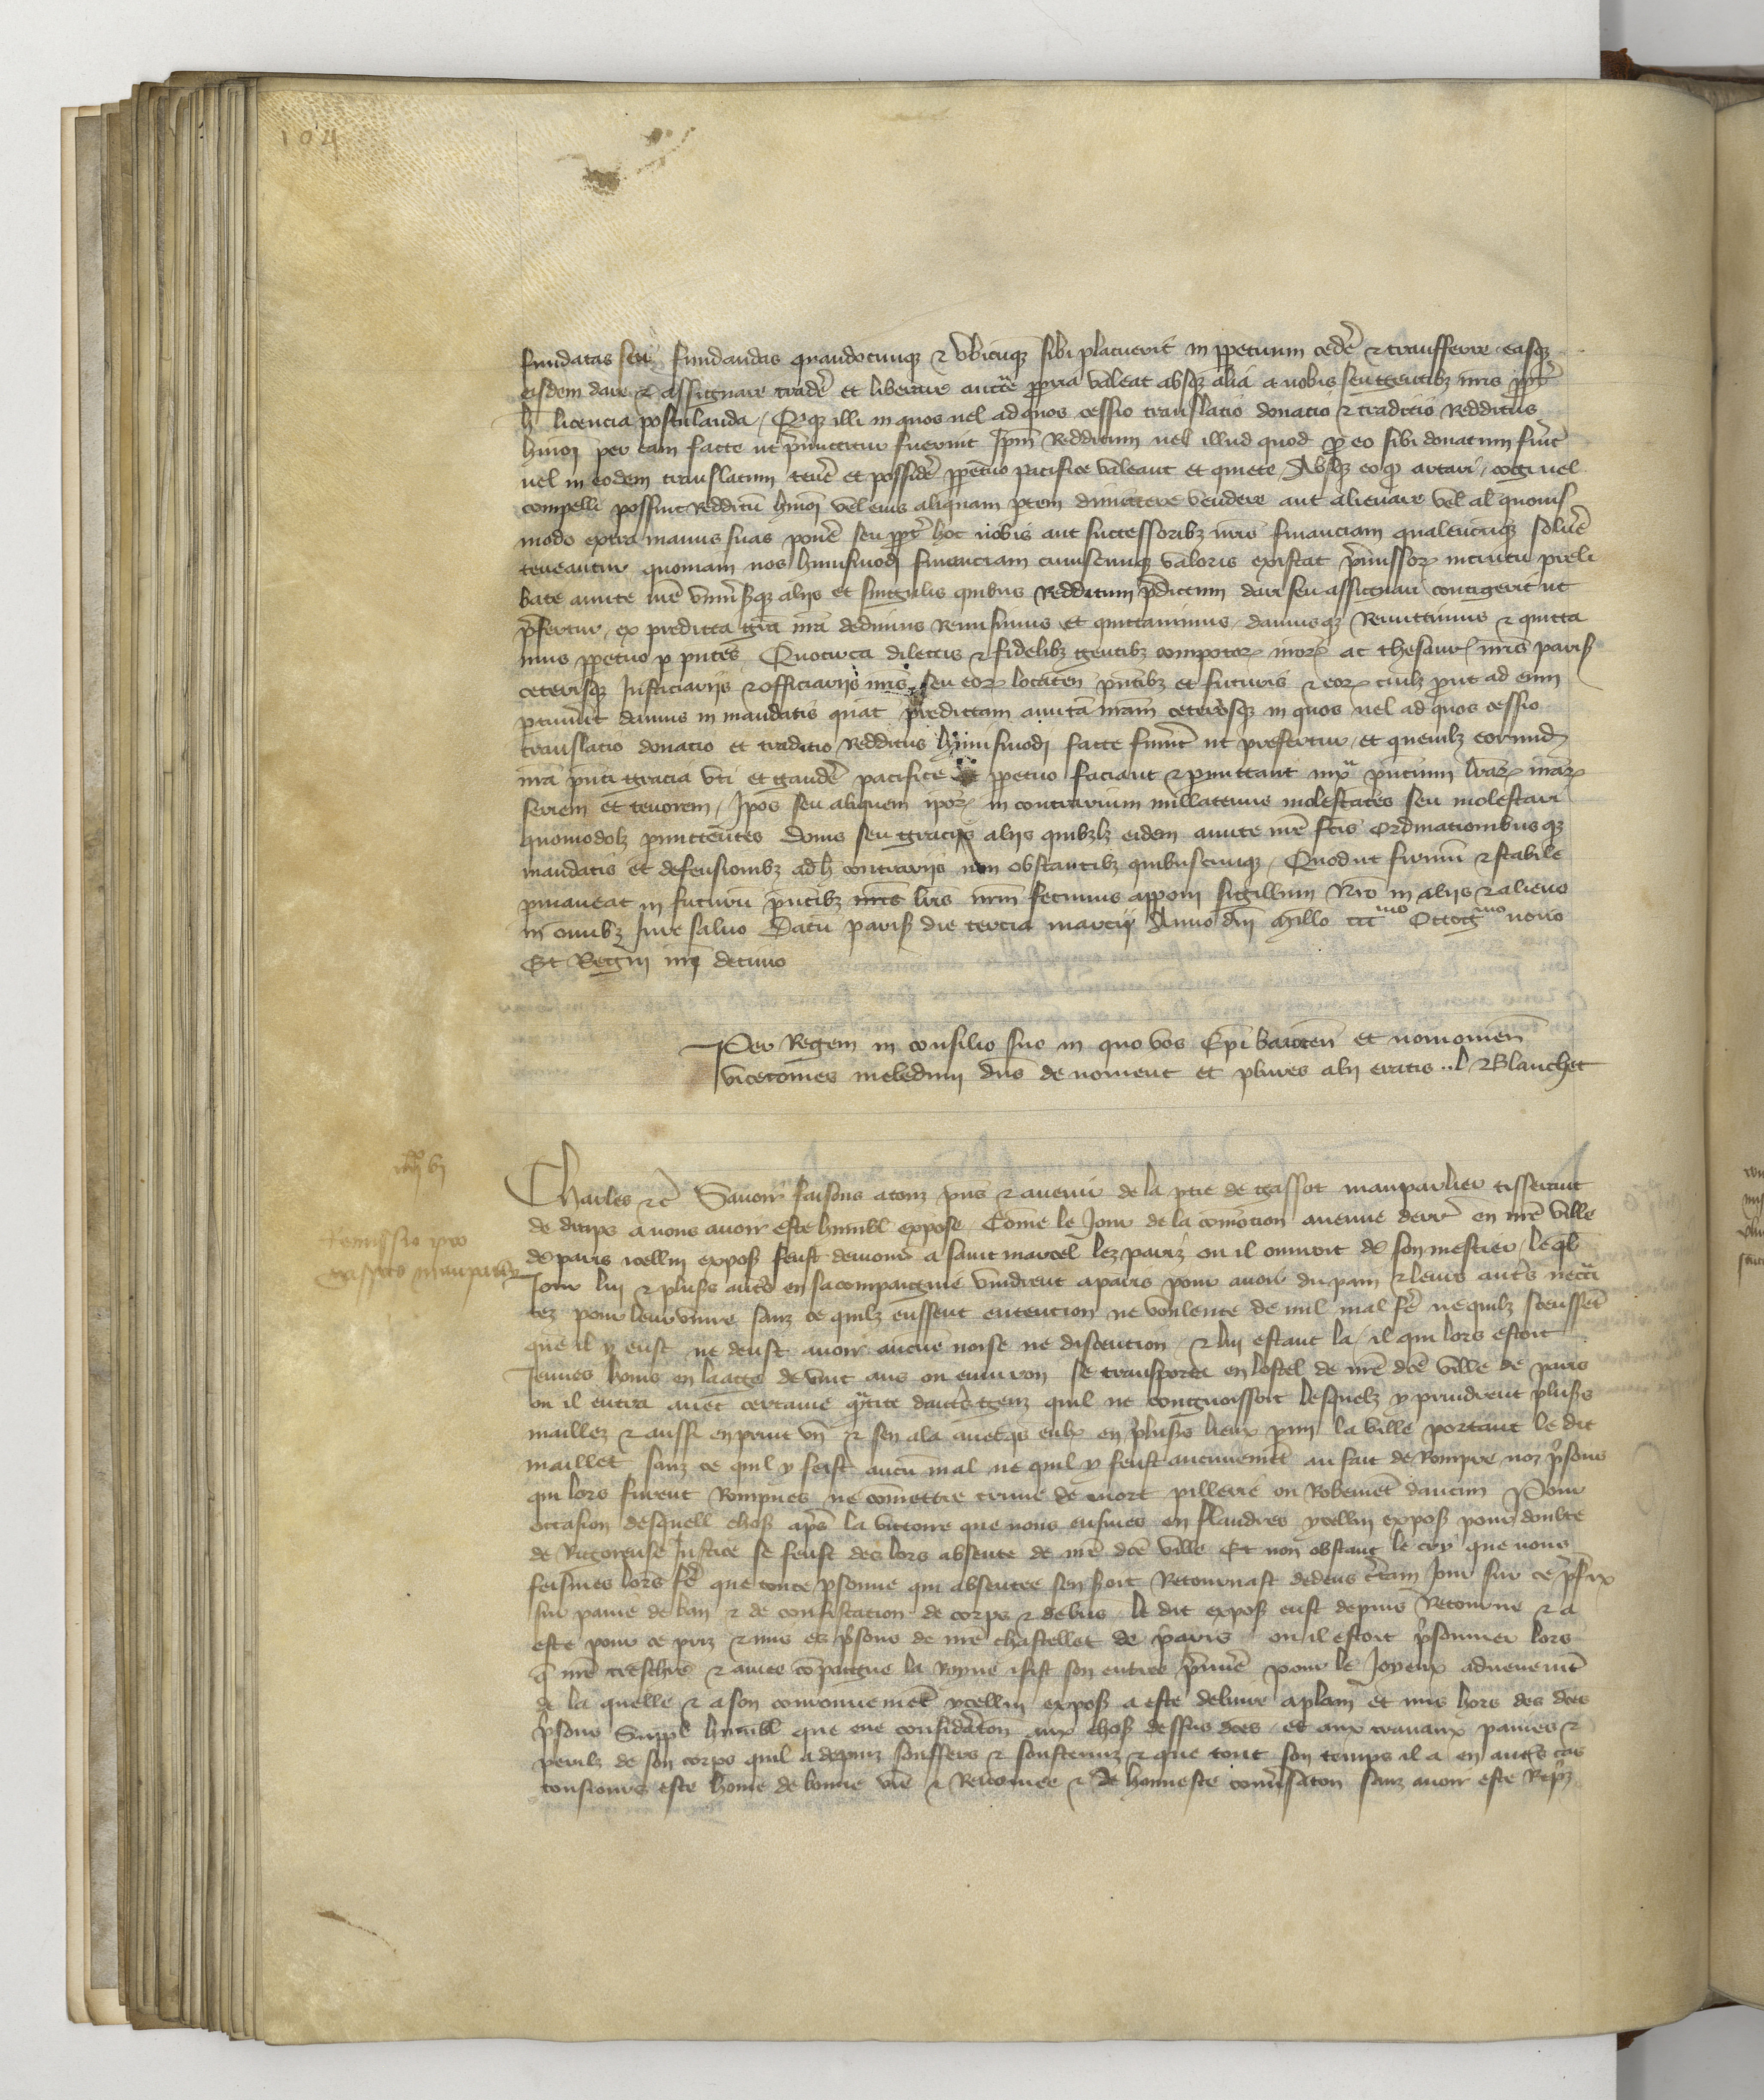 104
fundatas seu fundandas quandocunqz & vbicunqz sibi placuerit in ppetuum cedere & transferre easqz
eisdem dare & assignare tradere et liberare auctte ppria valeat absqz alia a nobis seu gentibz nris ppt
h licencia postulanda / Et qz illi in quos uel ad quos cessio translatio donatio & traditio Redditus
hmoj per eam facte ut pmittitur fuerint Ipm Redditum uel illud quod pro eo sibi donatum fuit
uel in eodem translatum tenere et possidere ppetuo pacifice valeant et quiete / Absqz eo qd artari / cogi uel
compelli possint Redditu hmoj vel eius aliquam ptem dimittere vendere aut alienare vel al quouis
modo extra manus suas ponere seu ppt hoc nobis aut successoribz nris financiam qualencuqz soluere
teneantur quoniam nos huiusmodj financiam cuiuscunqz valoris existat pmissor intuitu preli
bate amite nre vniusqz alijs et singulis quibus Redditum pdictum dari seu assignari contigerit ut
pfertur / ex predicta gra nra dedimus Remisimus et quittauimus / damusqz Remittimus & quitta
mus ppetuo p pntes Quocirca dilectis & fidelibz gentibz compotor nror ac thesaur nris paris
ceterisqz Justiciarijs & officiarijs nris seu eor locaten pntibz et futuris & eor cuilz put ad eum
ptinuit damus in mandatis qat predictam amita nram ceterosqz in quos uel ad quos cessio
translatio donatio et traditio Redditus huiusmodj facte fuint ut prefertur / et quemlz eorumd
nra pnti gracia vti et gaudere pacifice ppetuo faciant & pmittant iuxa pncium lrar nrar
seriem et tenorem / Ipos seu aliquem ipor in contrarium nullatenus molestates seu molestari
quomodolz pmittentes donis seu gracijs alijs quibzlz eidem amite nre fcis Ordinationibusqz
mandatis et defensionibz ad h contrarijs non obstantibz quibuscunqz / Quod ut firmu & stabile
pmaneat in futuru pntibz lris nrm fecimus apponi sigillum Nro in alijs & alieno
in omibz Jure saluo Datu paris die tercia marcij Anno dni millo ccc mo Octog mo nono
Et Regni nri decimo
Per Regem in consilio suo in quo vos Epi baiocen et nouiomen
vicecomes meleduni dns de nouient et plures alij eratis .. L Blanchet
Charles &c Sauoir faisons a touz pns & auenir de la ptie de gassot mauparlier tisserant
de draps a nous auoir este humbl expose / Come le Jour de la comocion auenue derr en nre ville
de paris icellui expos feust demour a saint marcel lez pariz ou il ouuroit de son mestier / le ql
Jour lui & plus autes en sa compaignie vindrent a paris pour auoir du pain & leurs autes necca
tez pour leur viure sanz ce quilz eussent entencion ne voulente de nul mal fe ne quilz sceusset
que il y eust ne deust auoir aucune noise ne discention / & lui estant la / il qui lors estoit
Jeunes homs en laage de vint ans ou enuiron se transporta en lostel de nre dce ville de paris
ou il entra auec certaine qtite dautes genz quil ne congnoissoit lesquelz y prindrent plus
maillez & aussi en print vn & sen ala auecqs eulx en plus lieux pmi la ville portant le dit
maillet sanz ce quil y feist aucun mal ne quil y feust aucunemt au fait de Rompre noz psons
qui lors furent Rompues ne comettre crime de mort pillerie ou Robemet daucun Pour
occasion desquell chos aps la victoire que nous eusmes en flandres ycellui expos pour doubte
de Rigoreuse Justice se feust des lors absente de nre dce ville Et non obstant le cry que nous
feismes lors fe que toute psonne qui absentee sen estoit Retournast dedens ctain Jour sur ce pfix
sur paine de ban & de confiscation de corps & de biens / le dit expos eust depuis Retourne & a
este pour ce priz & mis es psons de nre chastellet de paris ou il estoit psonnier lors
q nre treschie & amee copaigne la Royne y fist son entree pmie pour le Joyeux aduenemt
de la quelle & a son couronnemet ycellui expos a este deliure a plain et mis hors des dces
psons Suppl humbl que eue considaton aux chos dessus dces / et aux trauaux paines &
perilz de son corps quil a depuiz souffers & soustenuz & que tout son temps il a en autes cas
tousiours este home de bonne vie & Renomee & de honneste conusaton sanz auoir este Repriz
Remissio pro
gassoto mauparlier